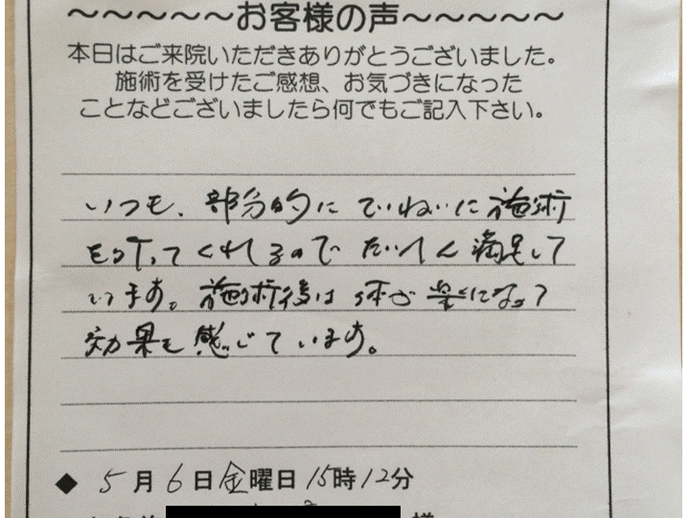 ～～～～～お客様の声～～～～～
本日はご来院いただきありがとうございました。
施術を受けたご感想、お気づきになった
ことなどございましたら何でもご記入下さい。
いつも、部分的にていねいに施術
を行ってくれるので たいへん満足して
います。施術後は体が楽になって
効果を感じています。
◆ 5月6日金曜日15時12分
様